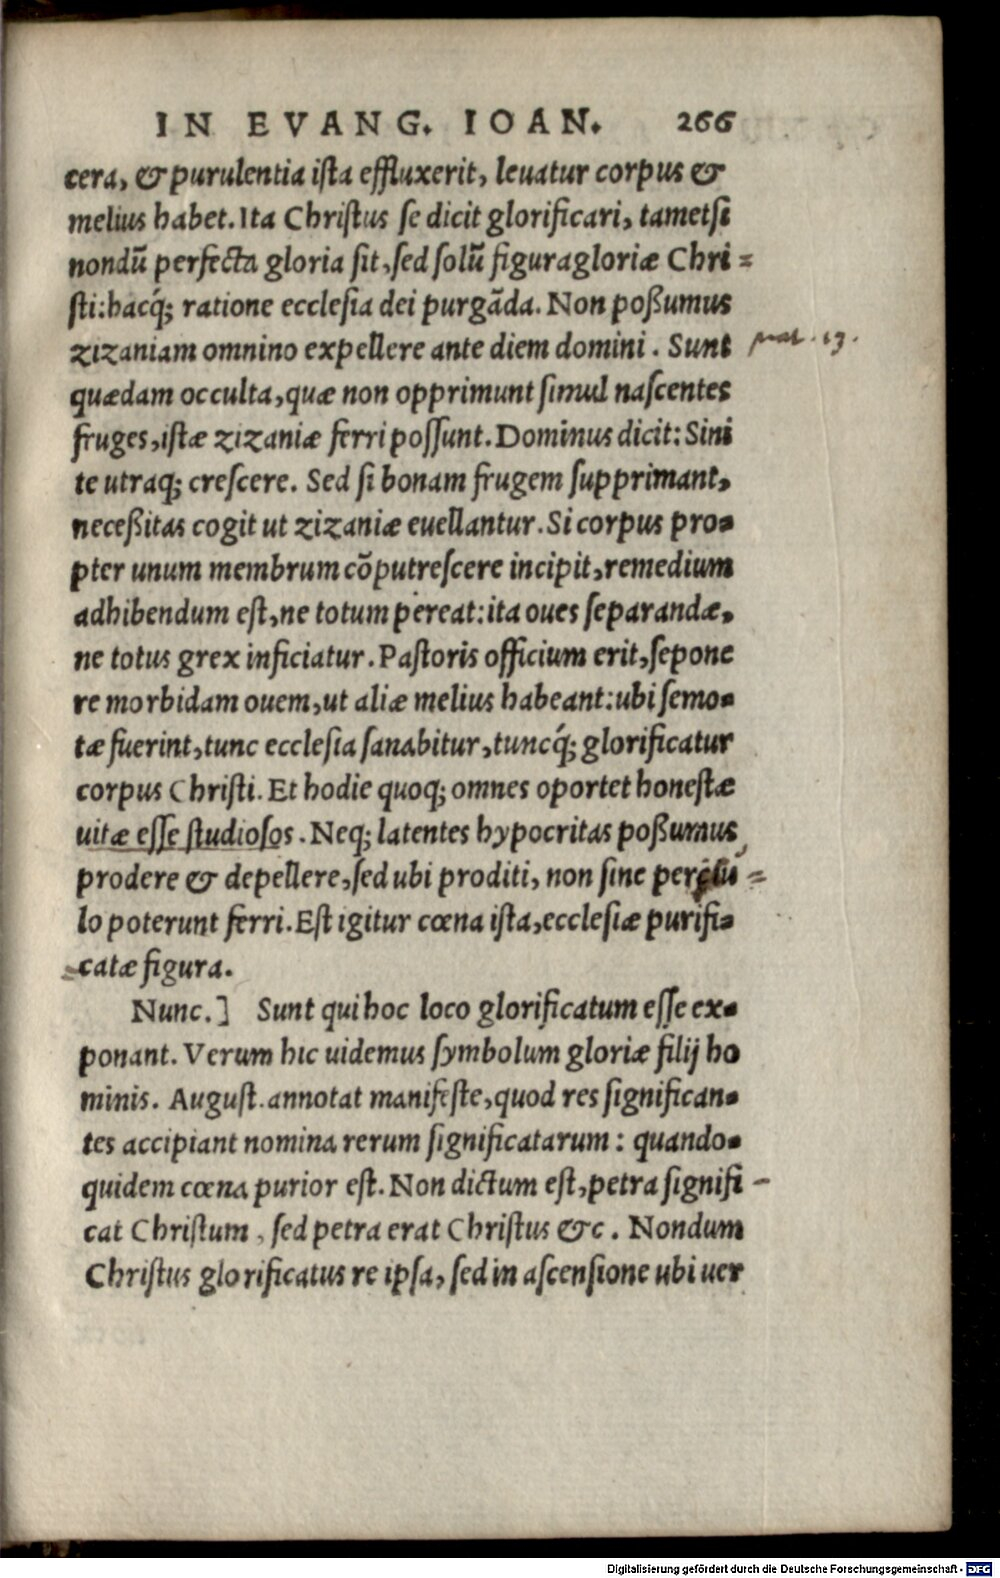 IN EVANG. IOAN. 266
cera, & purulentia iſta effluxerit, leuatur corpus &
melius habet. Ita Chriſtus ſe dicit glorificari, tametſi
nondũ perfecta gloria ſit, ſed ſolũ figuragloriæ Chri=
ſti: hacq́; ratione eccleſia dei purgãda. Non poßumus
zizaniam omnino expellere ante diem domini. Sunt
mat. 13.
quædam occulta, quæ non opprimunt ſimul naſcentes
fruges, iſtæ zizaniæ ferri poſſunt. Dominus dicit: Sini
te utraq; creſcere. Sed ſi bonam frugem ſupprimant,
neceßitas cogit ut zizaniæ euellantur. Si corpus pro-
pter unum membrum cõputreſcere incipit, remedium
adhibendum eſt, ne totum pereat: ita oues ſeparandæ,
ne totus grex inficiatur. Paſtoris officium erit, ſepone
re morbidam ouem, ut aliæ melius habeant: ubi ſemo-
tæ fuerint, tunc eccleſia ſanabitur, tuncq́; glorificatur
corpus Chriſti. Et hodie quoq; omnes oportet honeſtæ
uitæ eſſe ſtudioſos. Neq; latentes hypocritas poßumus
prodere & depellere, ſed ubi proditi, non ſine pericu=
lo poterunt ferri. Eſt igitur cœna iſta, eccleſiæ purifi-
catæ figura.
Nunc.] Sunt qui hoc loco glorificatum eſſe ex-
ponant. Verum hic uidemus ſymbolum gloriæ filij ho
minis. Auguſt. annotat manifeſte, quod res ſignifican-
tes accipiant nomina rerum ſignificatarum: quando-
quidem cœna purior eſt. Non dictum eſt, petra ſignifi-
cat Chriſtum, ſed petra erat Chriſtus &c. Nondum
Chriſtus glorificatus re ipſa, ſed in aſcenſione ubi uer
Digitalisierung gefördert durch die Deutsche Forschungsgemeinschaft - DFG